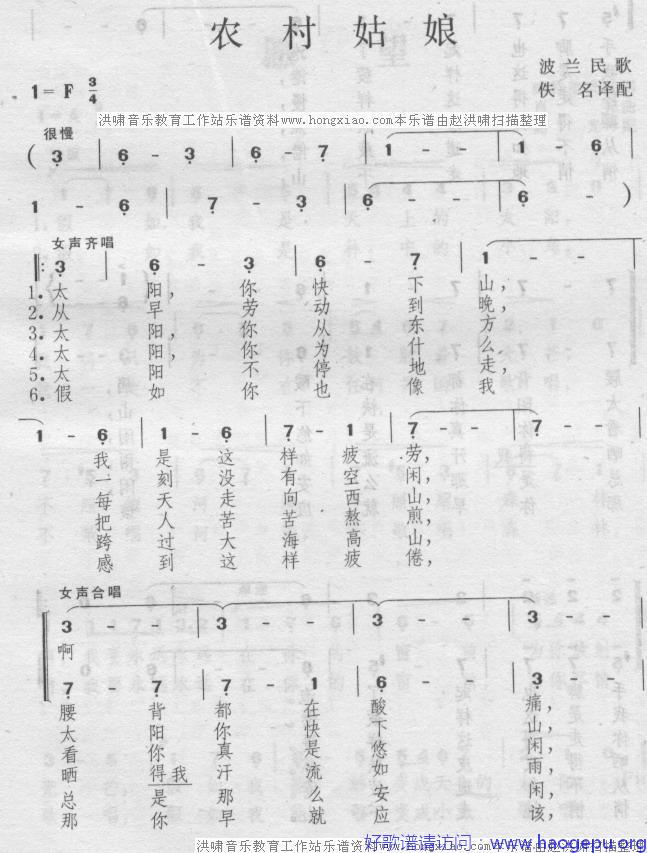 农村姑娘
波兰民歌
佚 名译配
1=F 3/4
洪啸音乐教育工作站乐谱资料www.hongxiao.com本乐谱由赵洪啸扫描整理
很慢
( 3 | 6 - 3 | 6 - 6 | 7 | 1 - - | 1 - 6 |
1 - 6 | 7 - 3 | 6 - - | 6 - )
女声齐唱
‖: 3 | 6 - 3 | 6 - 6 | 7 | 1 - - |
1.太阳,你快下山,
2.从早劳动到晚,
3.太阳,你从东方
4.太阳你为什么
5.太阳不停地走,
6.假如你也像我
1 - 6 | 1 - 6 | 7 - 1 | 7 - - | 7 - -
我是这样疲劳,
一刻没有空闲,
每天走向西山,
把人苦苦熬煎,
跨过大海高山,
感到这样疲倦,
女声合唱
3 - - | 3 - - | 3 - - | 3 - -
啊
7 - 7 | 7 - 1 | 6 - - | 3 - -
腰背都在酸痛,
太阳你快下山,
看你真是悠闲,
晒得我汗流如雨,
总是那么安闲,
那你早就应该,
洪啸音乐教育工作站乐谱资料www.hongxiao.com本乐谱由赵洪啸扫描整理
好歌谱请访问：www.haogepu.org